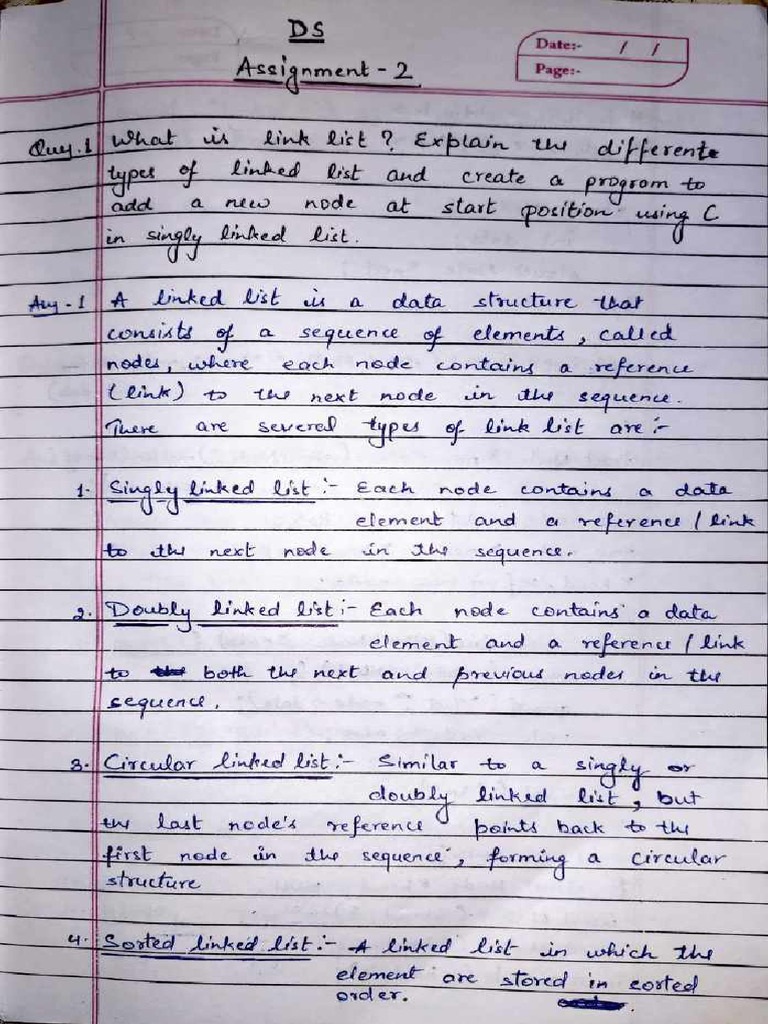 DS
Assignment - 2
Date:- / /
Page:-
Quy.1 What is link list? Explain the differente
types of linked list and create a program to
add a new node at start position using C
in singly linked list.
Any - 1 A linked list is a data structure that
consists of a sequence of elements, called
nodes, where each node contains a reference
(link) to the next node in the sequence.
There are several types of link list are :-
1. Singly linked list :- Each node contains a data
element and a reference / link
to the next node in the sequence.
2. Doubly linked list :- Each node contains a data
element and a reference / link
to both the next and previous nodes in the
sequence.
3. Circular linked list :- Similar to a singly or
doubly linked list, but
the last node's reference points back to the
first node in the sequence, forming a circular
structure
4. Sorted linked list :- A linked list in which the
element are stored in sorted
order.